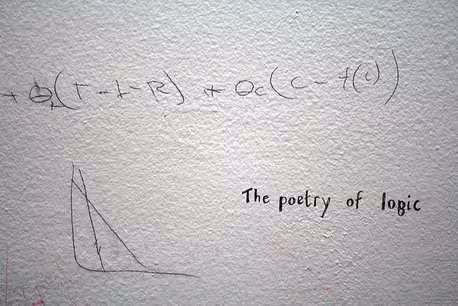 + Θ (T - L - R) + Θc (c - f( ))
The poetry of logic